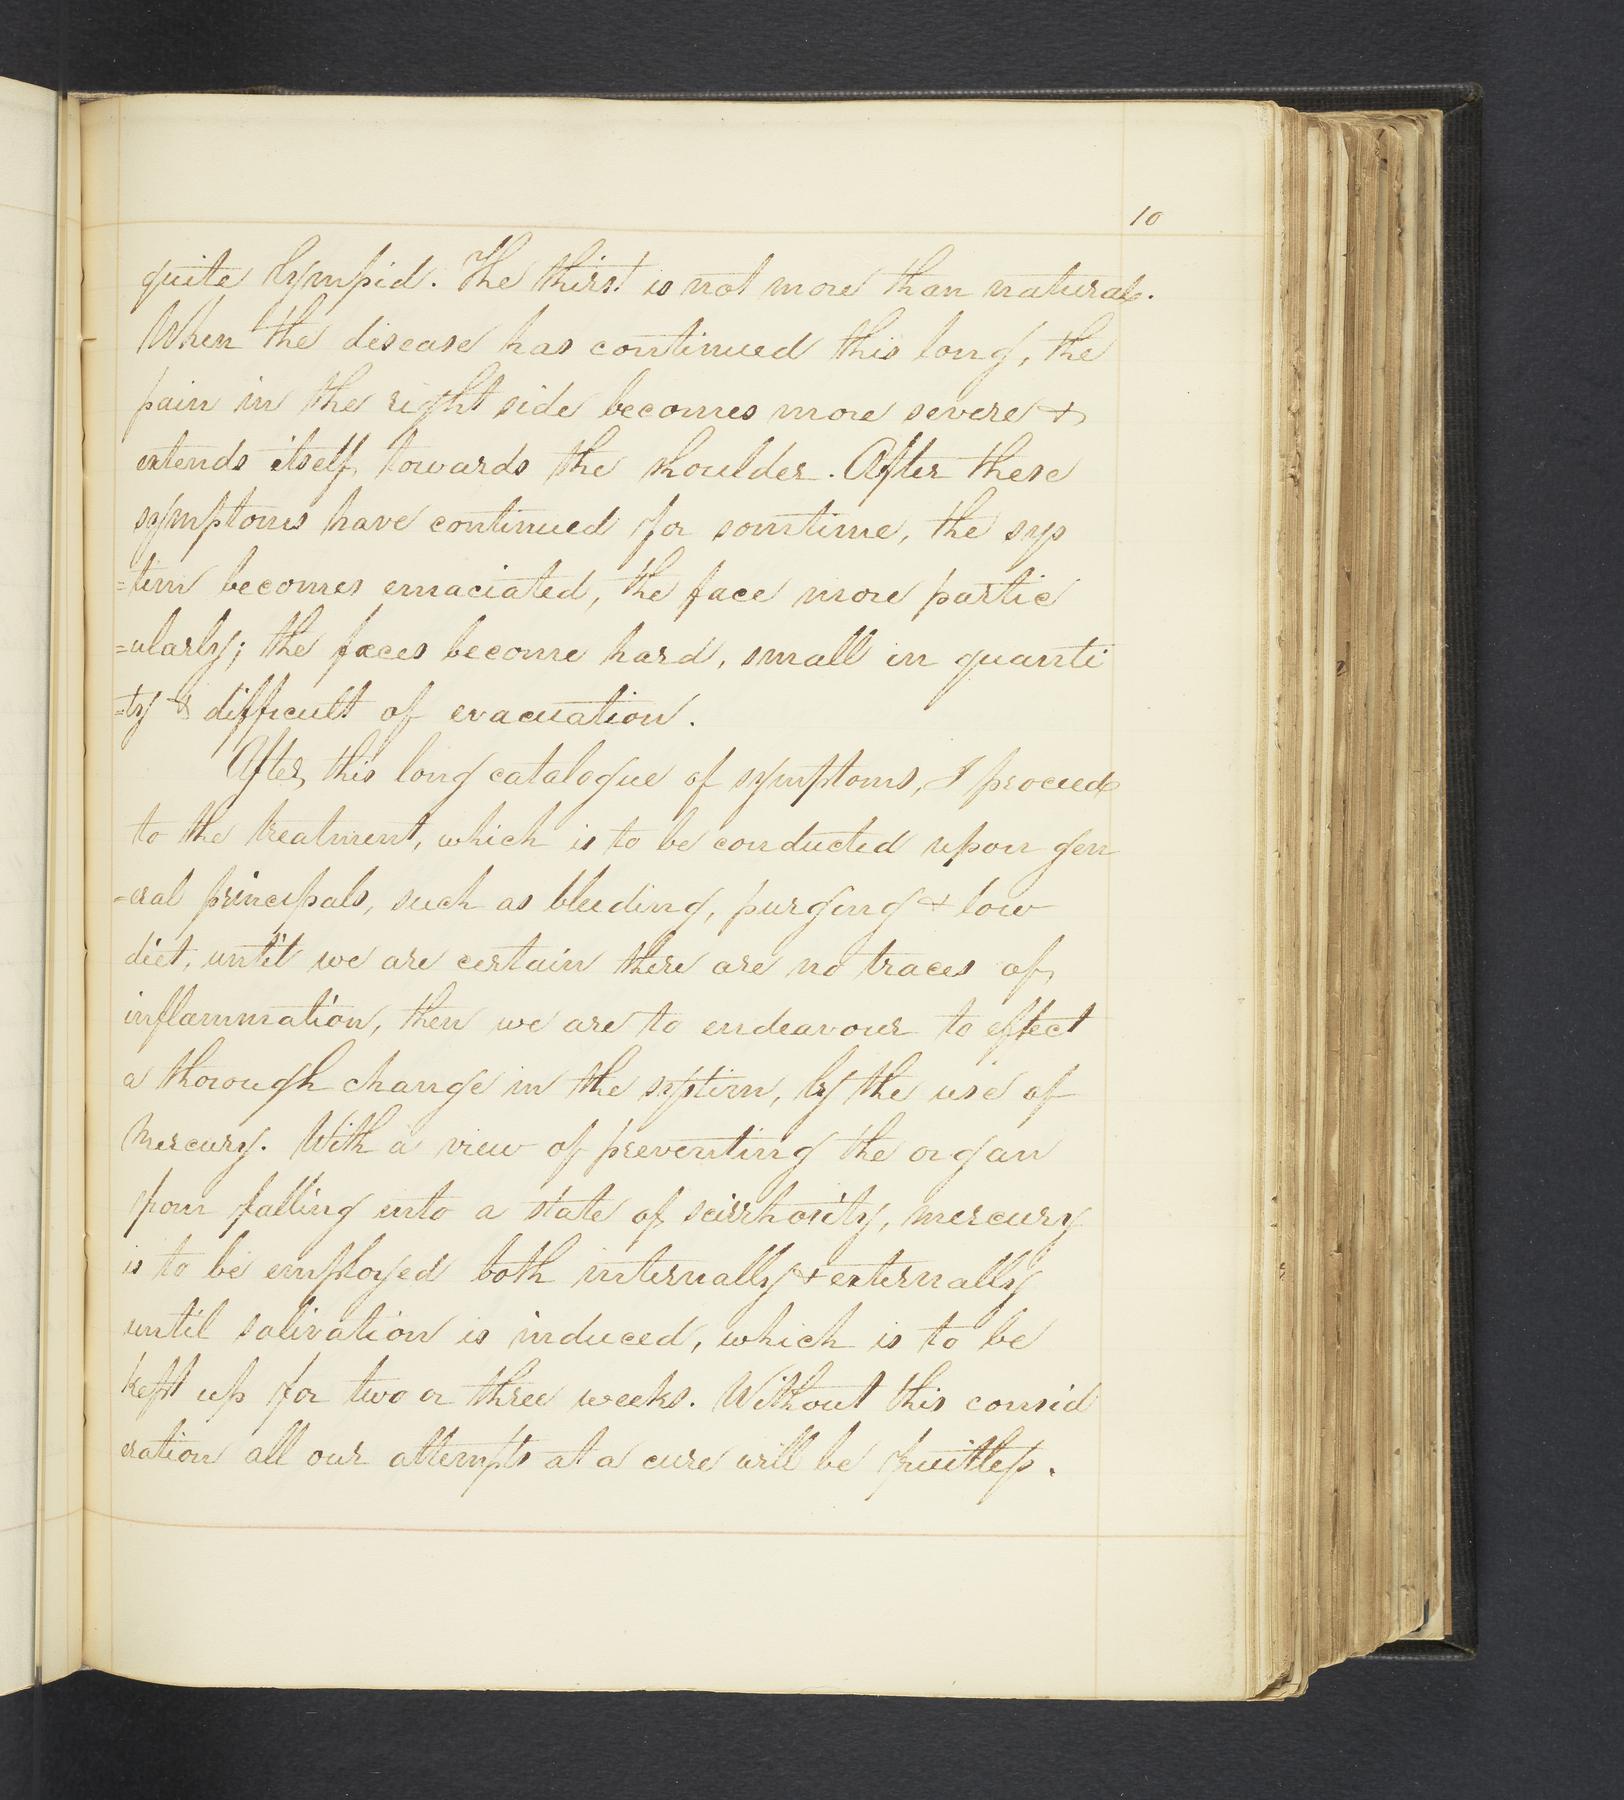 10
quite lympid. The thirst is not more than natural.
When the disease has continued this long, the
pain in the right side becomes more severe &
extends itself towards the shoulder. After these
symptoms have continued for somtime, the sys
=tem becomes emaciated, the face more partic
=ularly; the fæces become hard, small in quanti
=ty & difficult of evacuation.
After this long catalogue of symptoms, I proceed
to the treatment, which is to be conducted upon gen
=eral principals, such as bleeding, purging & low
diet, until we are certain there are no traces of
inflammation, then we are to endeavour to effect
a thorough change in the system, by the use of
mercury. With a view of preventing the organ
from falling into a state of scirrhosity, mercury
is to be employed both internally & externally
until salivation is induced, which is to be
kept up for two or three weeks. Without this consid
eration all our attempts at a cure will be fruitless.